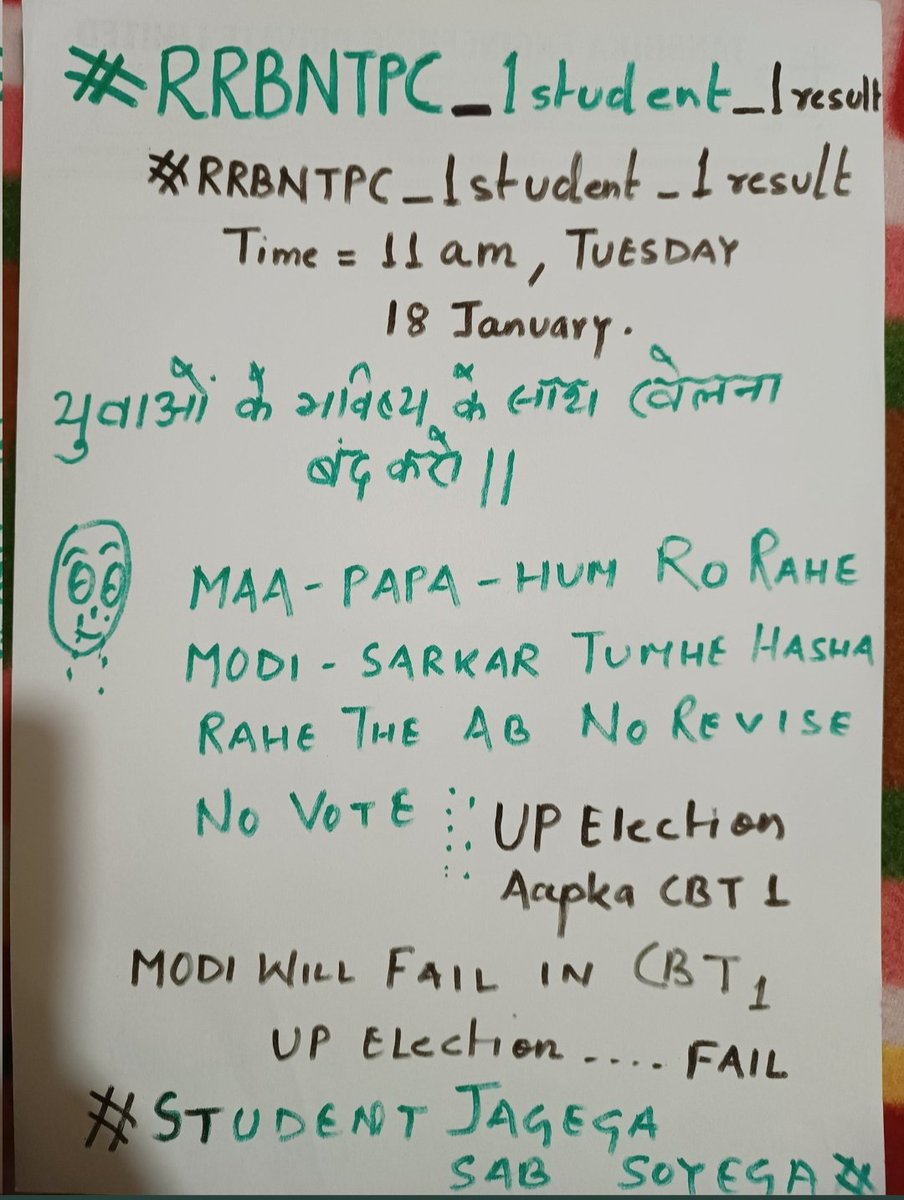 #RRBNTPC_1student_1result
#RRBNTPC_1student_1result
Time = 11 am, TUESDAY
18 January.
युवाओं के भविष्य के साथ खेलना
बंद करो ||
MAA - PAPA - HUM RO RAHE
MODI - SARKAR TUMHE HASHA
RAHE THE AB NO REVISE
NO VOTE
UP Election
Aapka CBT 1
MODI WILL FAIL IN CBT 1
UP Election .... FAIL
#STUDENT JAGEGA
SAB SOYEGA